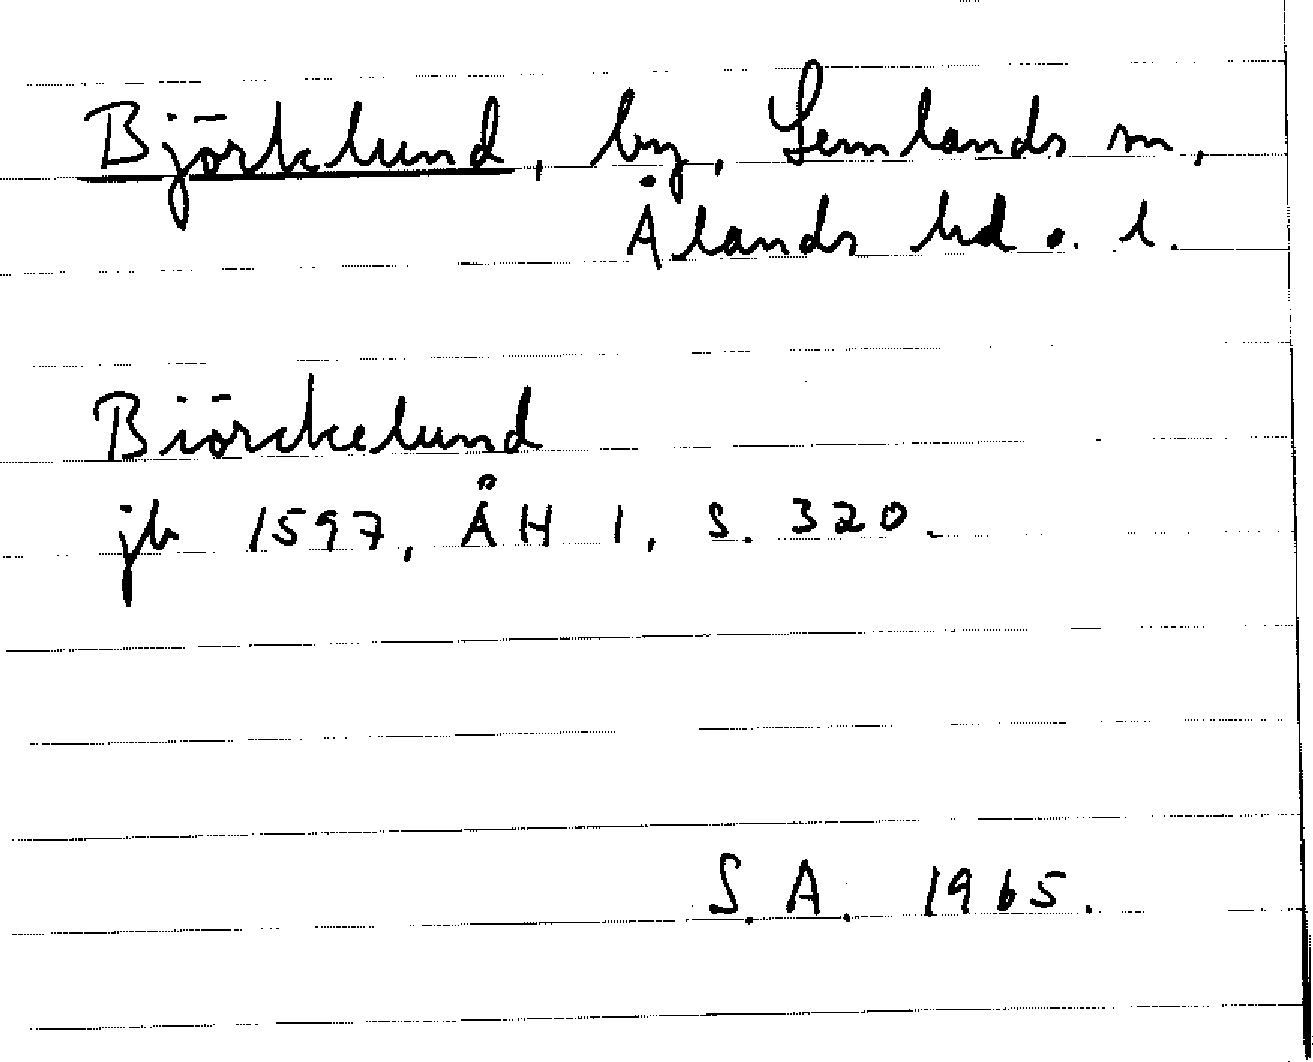 Björklund, by, Lemlands sn,
Ålands hd o. l.
Biörckelund
jb 1597, ÅH 1, s. 320.
S.A. 1965.